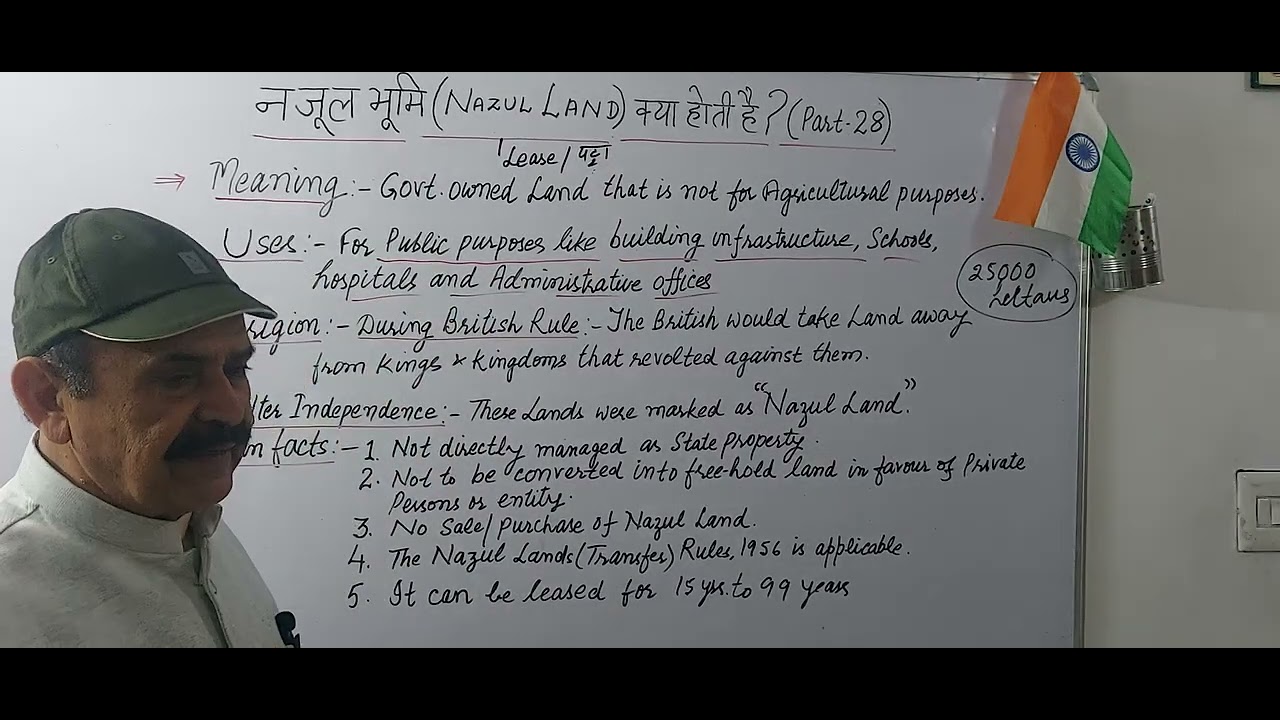 नजूल भूमि (NAZUL LAND) क्या होती है? (Part-28)
Lease/पट्टा
⇒ Meaning:- Govt. owned Land that is not for Agricultural purposes.
Uses:- For Public purposes like building infrastructure, Schools,
hospitals and Administrative offices
25000 heltaus
rigion:- During British Rule:- The British would take Land away
from Kings & Kingdoms that revolted against them.
fter Independence:- These Lands were marked as "Nazul Land."
n facts:- 1. Not directly managed as State Property.
2. Not to be converted into free-hold land in favour of Private
Persons or entity.
3. No Sale/purchase of Nazul Land.
4. The Nazul Lands (Transfer) Rules, 1956 is applicable.
5. It can be leased for 15 yrs. to 99 years